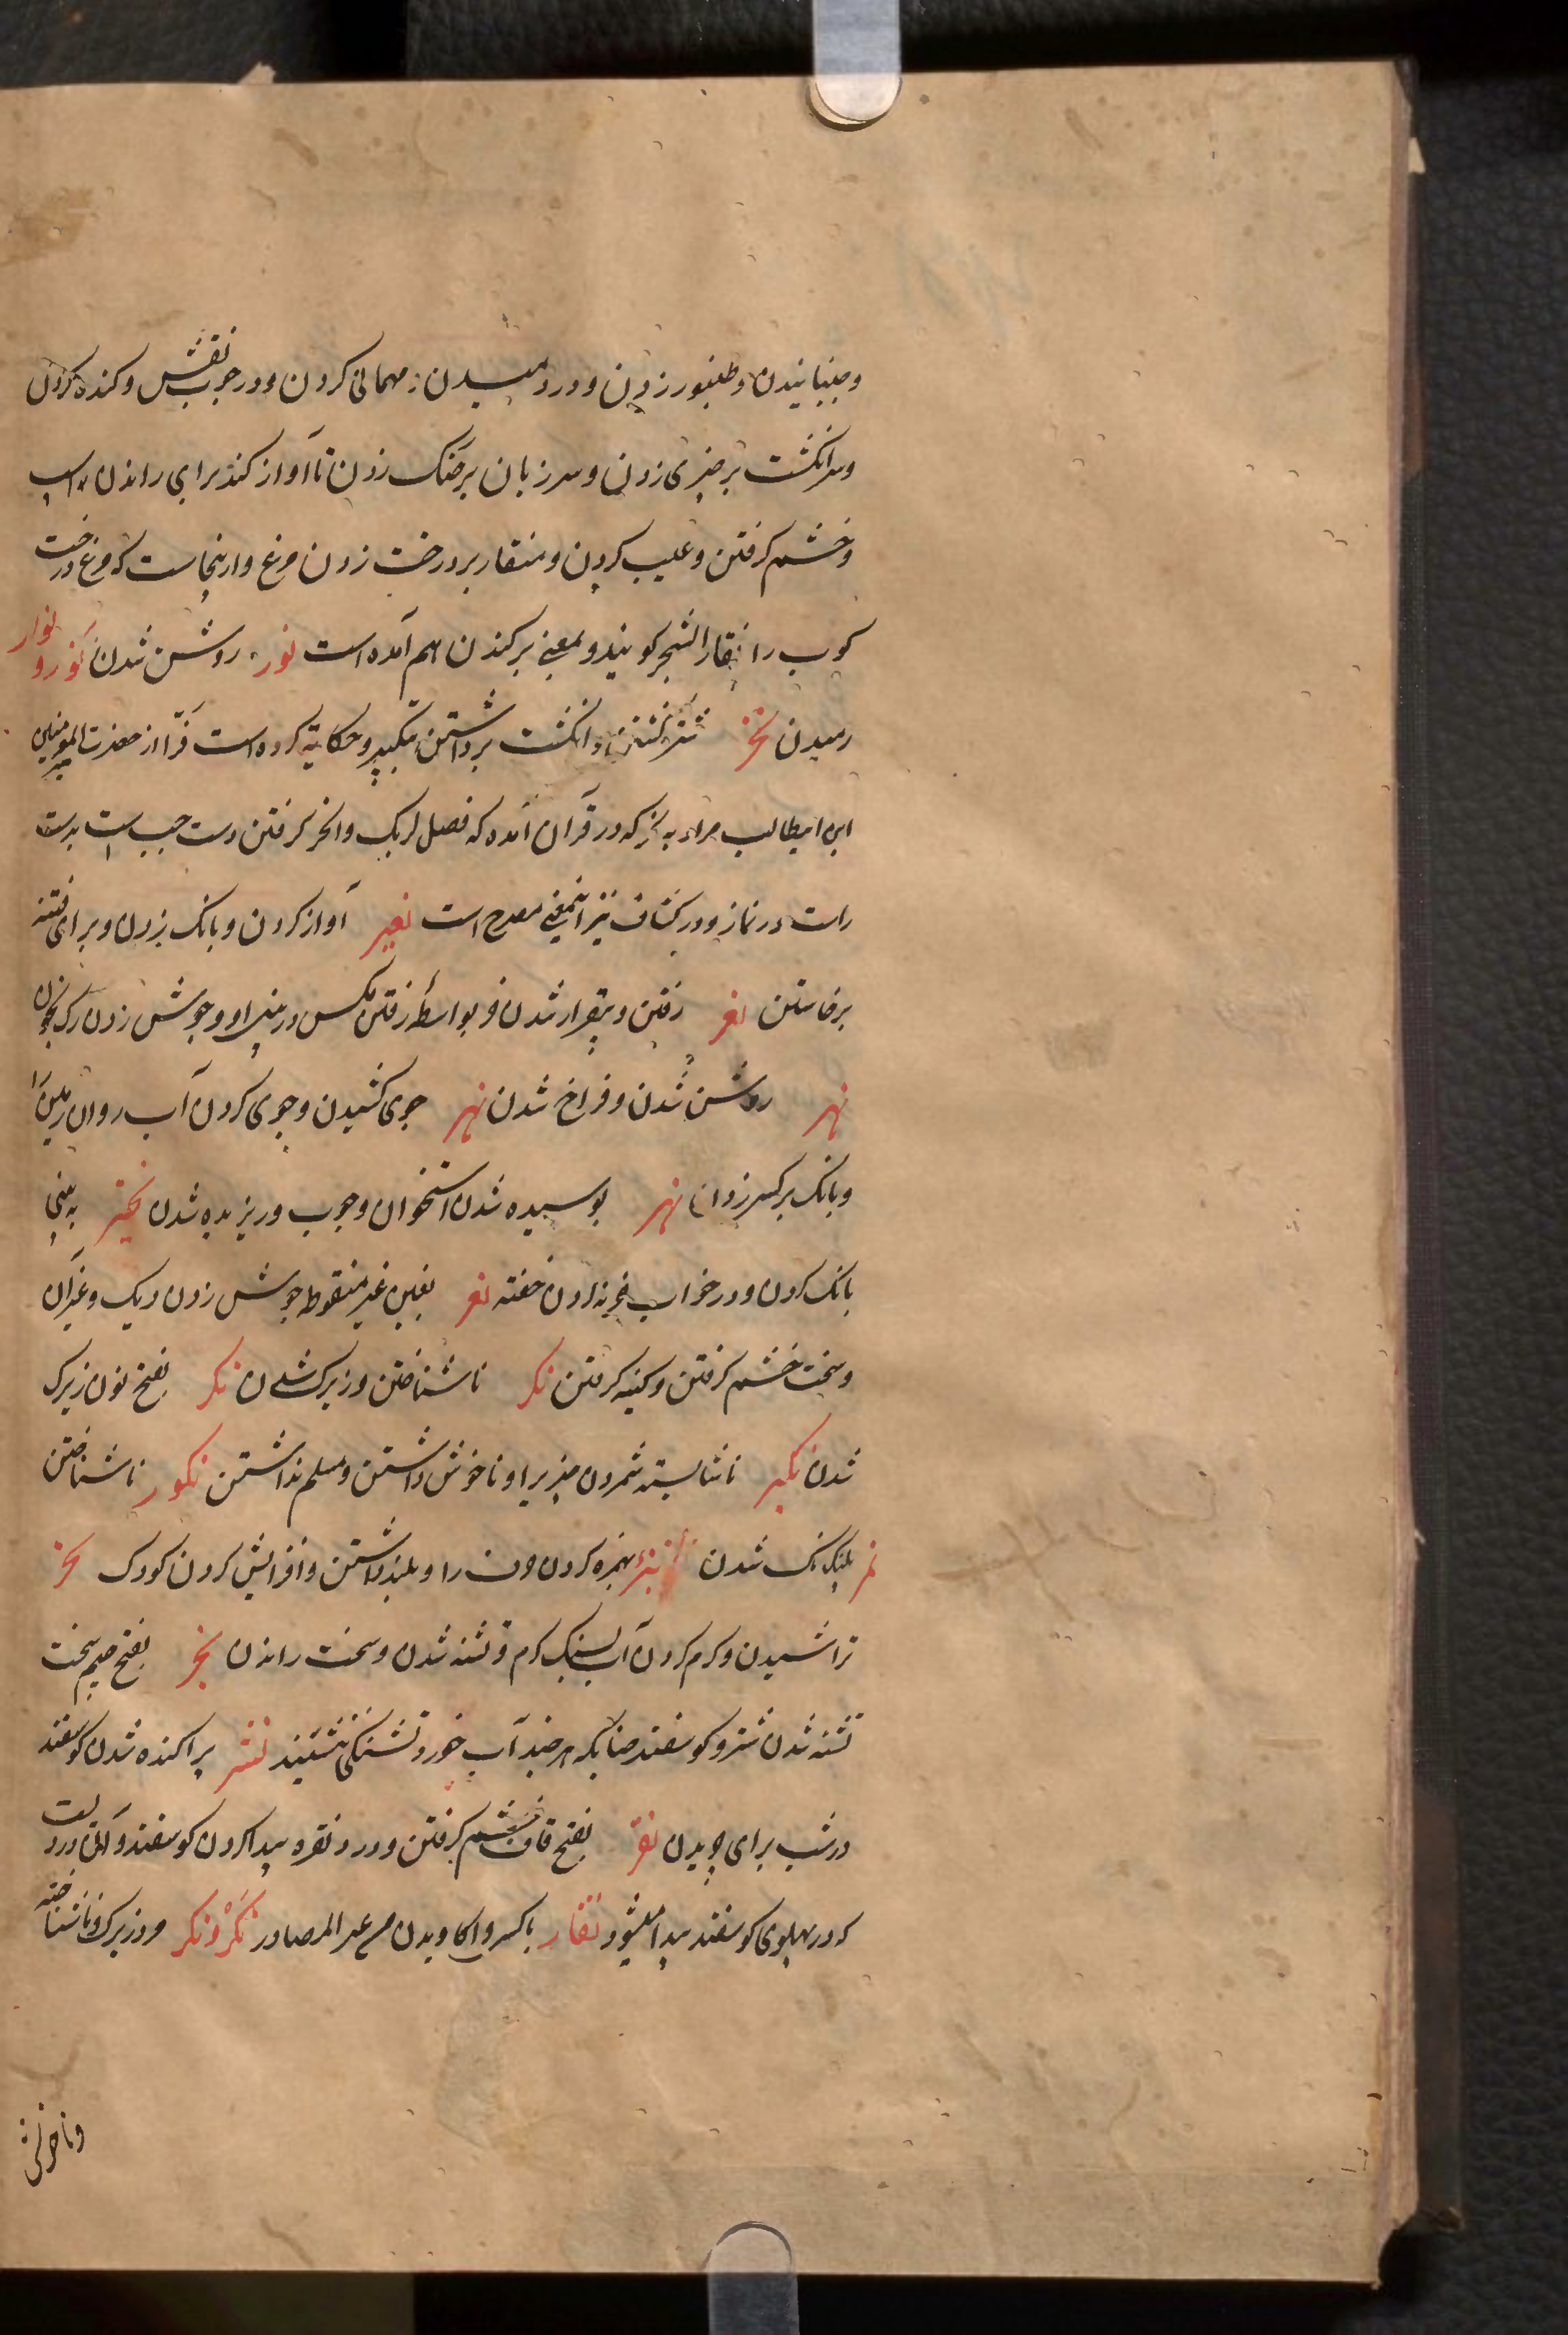 و جنبانیدن و طنبور زدن و در دمیدن و مهمانی کردن و در چوب نقش و کنده کردن
و سرانگشت بر چیزی زدن و سر زبان بر حنک زدن تا آواز کند برای راندن اسپ
و خشم گرفتن و عیب کردن و منقار بر درخت زدن مرغ و ازینجاست که مرغ درخت
کوب را نقار الشجر گویند و بمعنی برکندن هم آمده است نور روشن شدن نور و نوار
رمیدن نحر شتر کشتن و انگشت برداشتن بتکبیر و حکایة کرده است فرّا از حضرت امیر المومنین
ابن ابیطالب مراد به نحر که در قرآن آمده که فصل لربک وانحر گرفتن دست چپ است بدست
راست در نماز و در کشاف نیز اینمعنی مصرح است نعیر آواز کردن و بانگ زدن و برای فتنه
برخاستن نعر رفتن و بیقرار شدن خر بواسطه رفتن مگس در بینی او و جوش زدن رگ بخون
نهر روشن شدن و فراخ شدن نهر جوی کشیدن و جوی کردن آب روان زمین را
و بانگ بر کسی زدن نهر بوسیده شدن استخوان و چوب و ریزیده شدن نخیر به بینی
بانگ کردن و در خواب خفته نغر بغین غیر منقوطه جوش زدن دیگ و غیر آن
و سخت خشم گرفتن و کینه گرفتن نکر ناشناختن و زیرک شدن نکر بفتح نون زیرک
شدن نکیر ناشایسته شمردن چیزیرا و ناخوش داشتن و مسلم نداشتن نکور ناشناختن
نمر پلنگ رنگ شدن نبر بهمزه کردن حرف را و بلند داشتن و افزایش کردن کودک نجر
تراشیدن و گرم کردن آب بسنگ گرم و تشنه شدن و سخت راندن نجر بفتح جیم سخت
تشنه شدن شتر و گوسفند چنانکه هر چند آب خورد تشنگی ننشیند نشر پراکنده شدن گوسفند
در شب برای چریدن نقر بفتح قاف خشم گرفتن و درد نقره پیدا کردن گوسفند و آن دردیست
که در پهلوی گوسفند پیدا میشود نقار باکسی واکاویدن نکر و نکر مرد زیرک و ناشناخته
و ناخوش